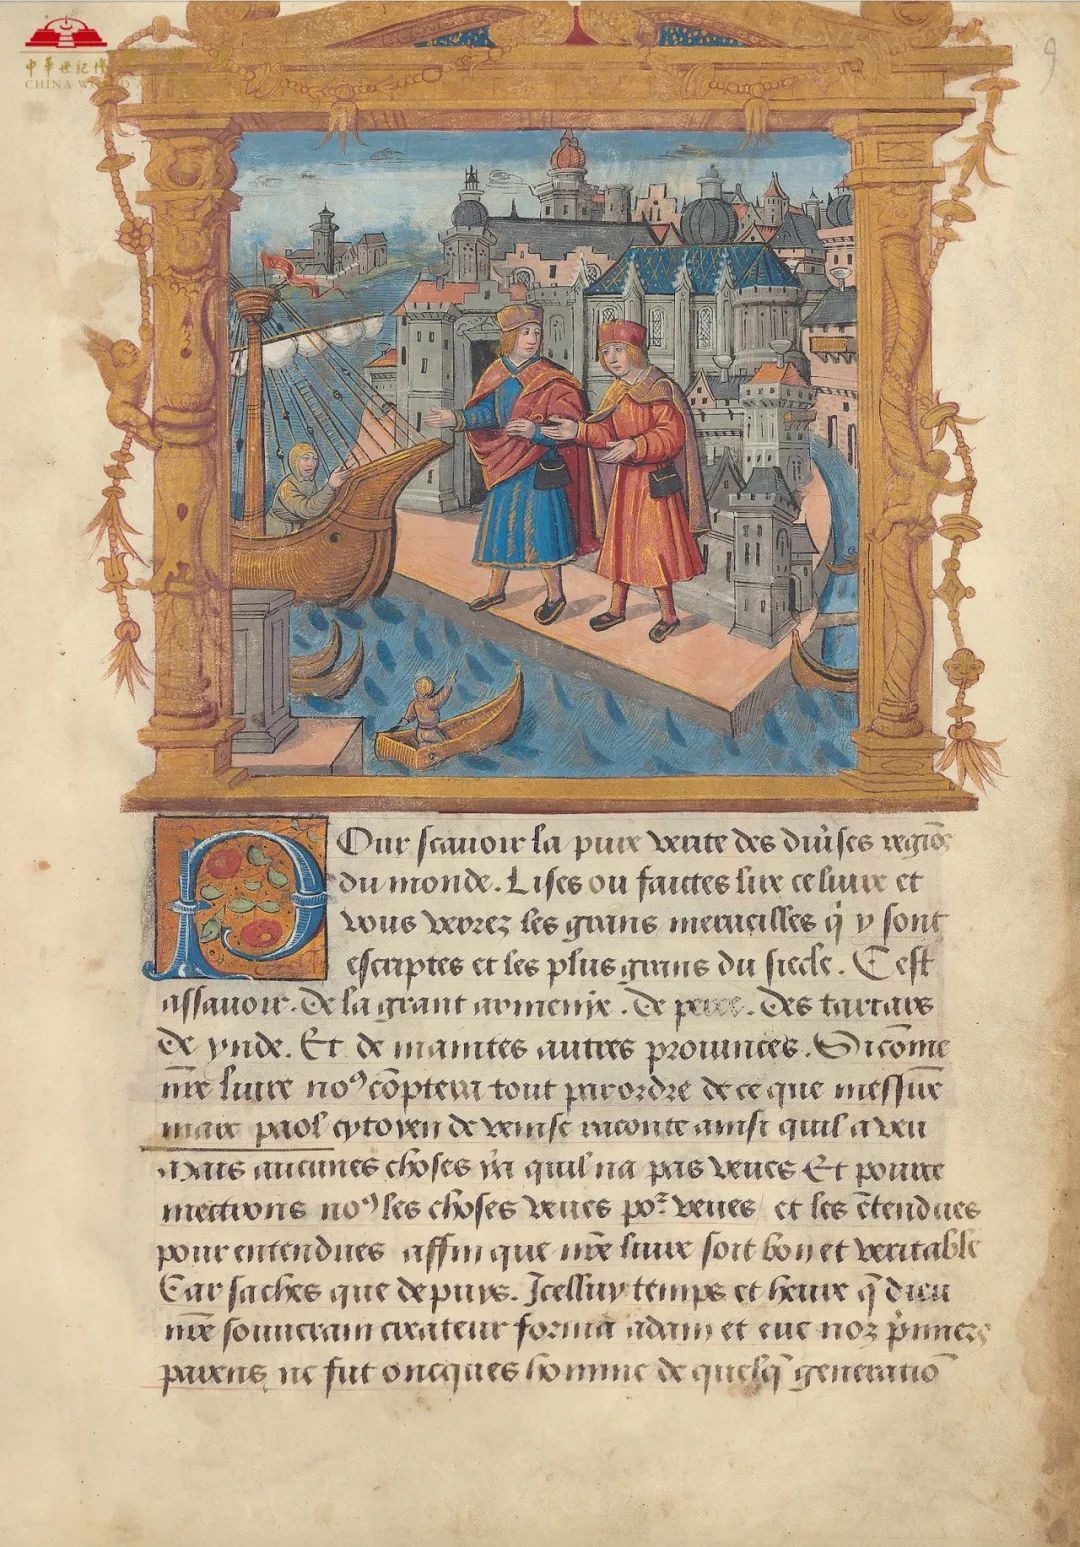 中華世纪
CHINA WO
9
Pour scauoir la pure verite des diuses regiōs
du monde. Lises ou faictes lire ce liure et
vous verrez les grans merueilles q̄ y sont
escriptes et les plus grans du siecle. Cest
assauoir. de la grant armenje. de perce. des tartars
de ynde. Et de maintes autres prouinces. Si cōme
nr̄e liure noꝰ cōptera tout par ordre de ce que messire
marc paol cytoyen de venise raconte ainsi quil a veu
Mais aucunes choses ya quil na pas veues Et pource
mectrons noꝰ les choses veues poʳ veues et les ētendues
pour entendues affin que nr̄e liure soit bon et veritable
Car saches que depuys. Icelluy temps et heure q̄ dieu
nr̄e souuerain createur forma adam et eue noz p̄miers
parens ne fut oncques homme de quelq̄ generatiō